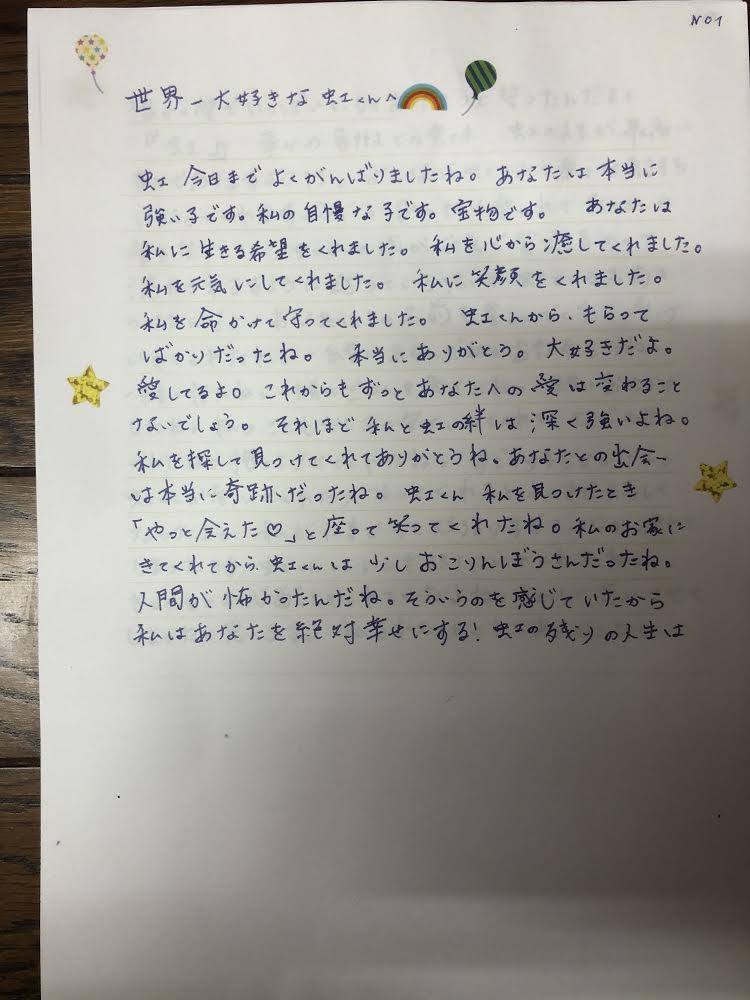 NO1
世界一大好きな 虹くんへ
虹 今日まで よくがんばりましたね。 あなたは 本当に
強い子です。私の自慢な子です。宝物です。 あなたは
私に 生きる希望をくれました。 私を心から癒してくれました。
私を元気にしてくれました。 私に笑顔をくれました。
私を 命かけて 守ってくれました。 虹くんから、もらって
ばかりだったね。 本当にありがとう。大好きだよ。
愛してるよ。これからもずっと あなたへの愛は変わること
ないでしょう。 それほど 私と虹の絆は深く強いよね。
私を探して見つけてくれてありがとうね。あなたとの出会い
は本当に奇跡だったね。 虹くん 私を見つけたとき
「やっと会えた♡」と座って笑ってくれたね。私のお家に
きてくれてから、虹くんは 少し おこりんぼうさんだったね。
人間が 怖かったんだね。そういうのを感じていたから
私はあなたを絶対幸せにする! 虹の残りの人生は